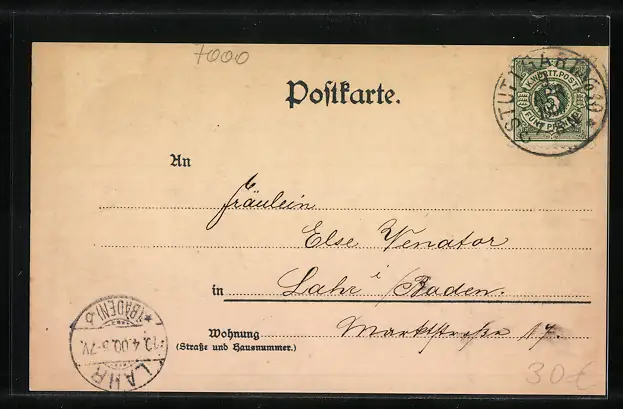 7000
Postkarte.
STUTTGART
K.WÜRTT.POST
5
FÜNF PFENNIG
An
Fräulein
Else Venator
in Lahr i/Baden.
Wohnung Marktstraße 17.
(Straße und Hausnummer.)
*(BADEN)b
13.4.00.6-7V.
LAHR
30€